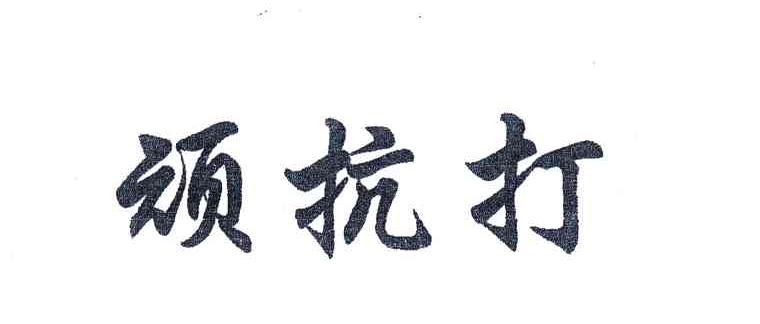 顽抗打